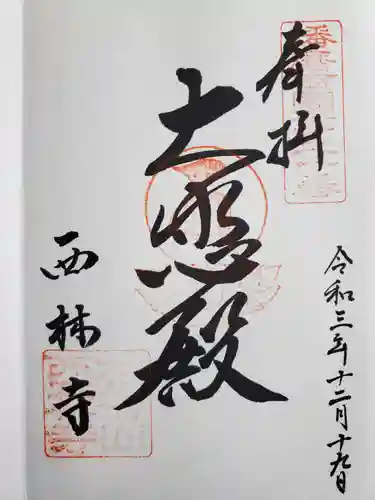 奉拝
大悲殿
西林寺
令和三年十二月十九日